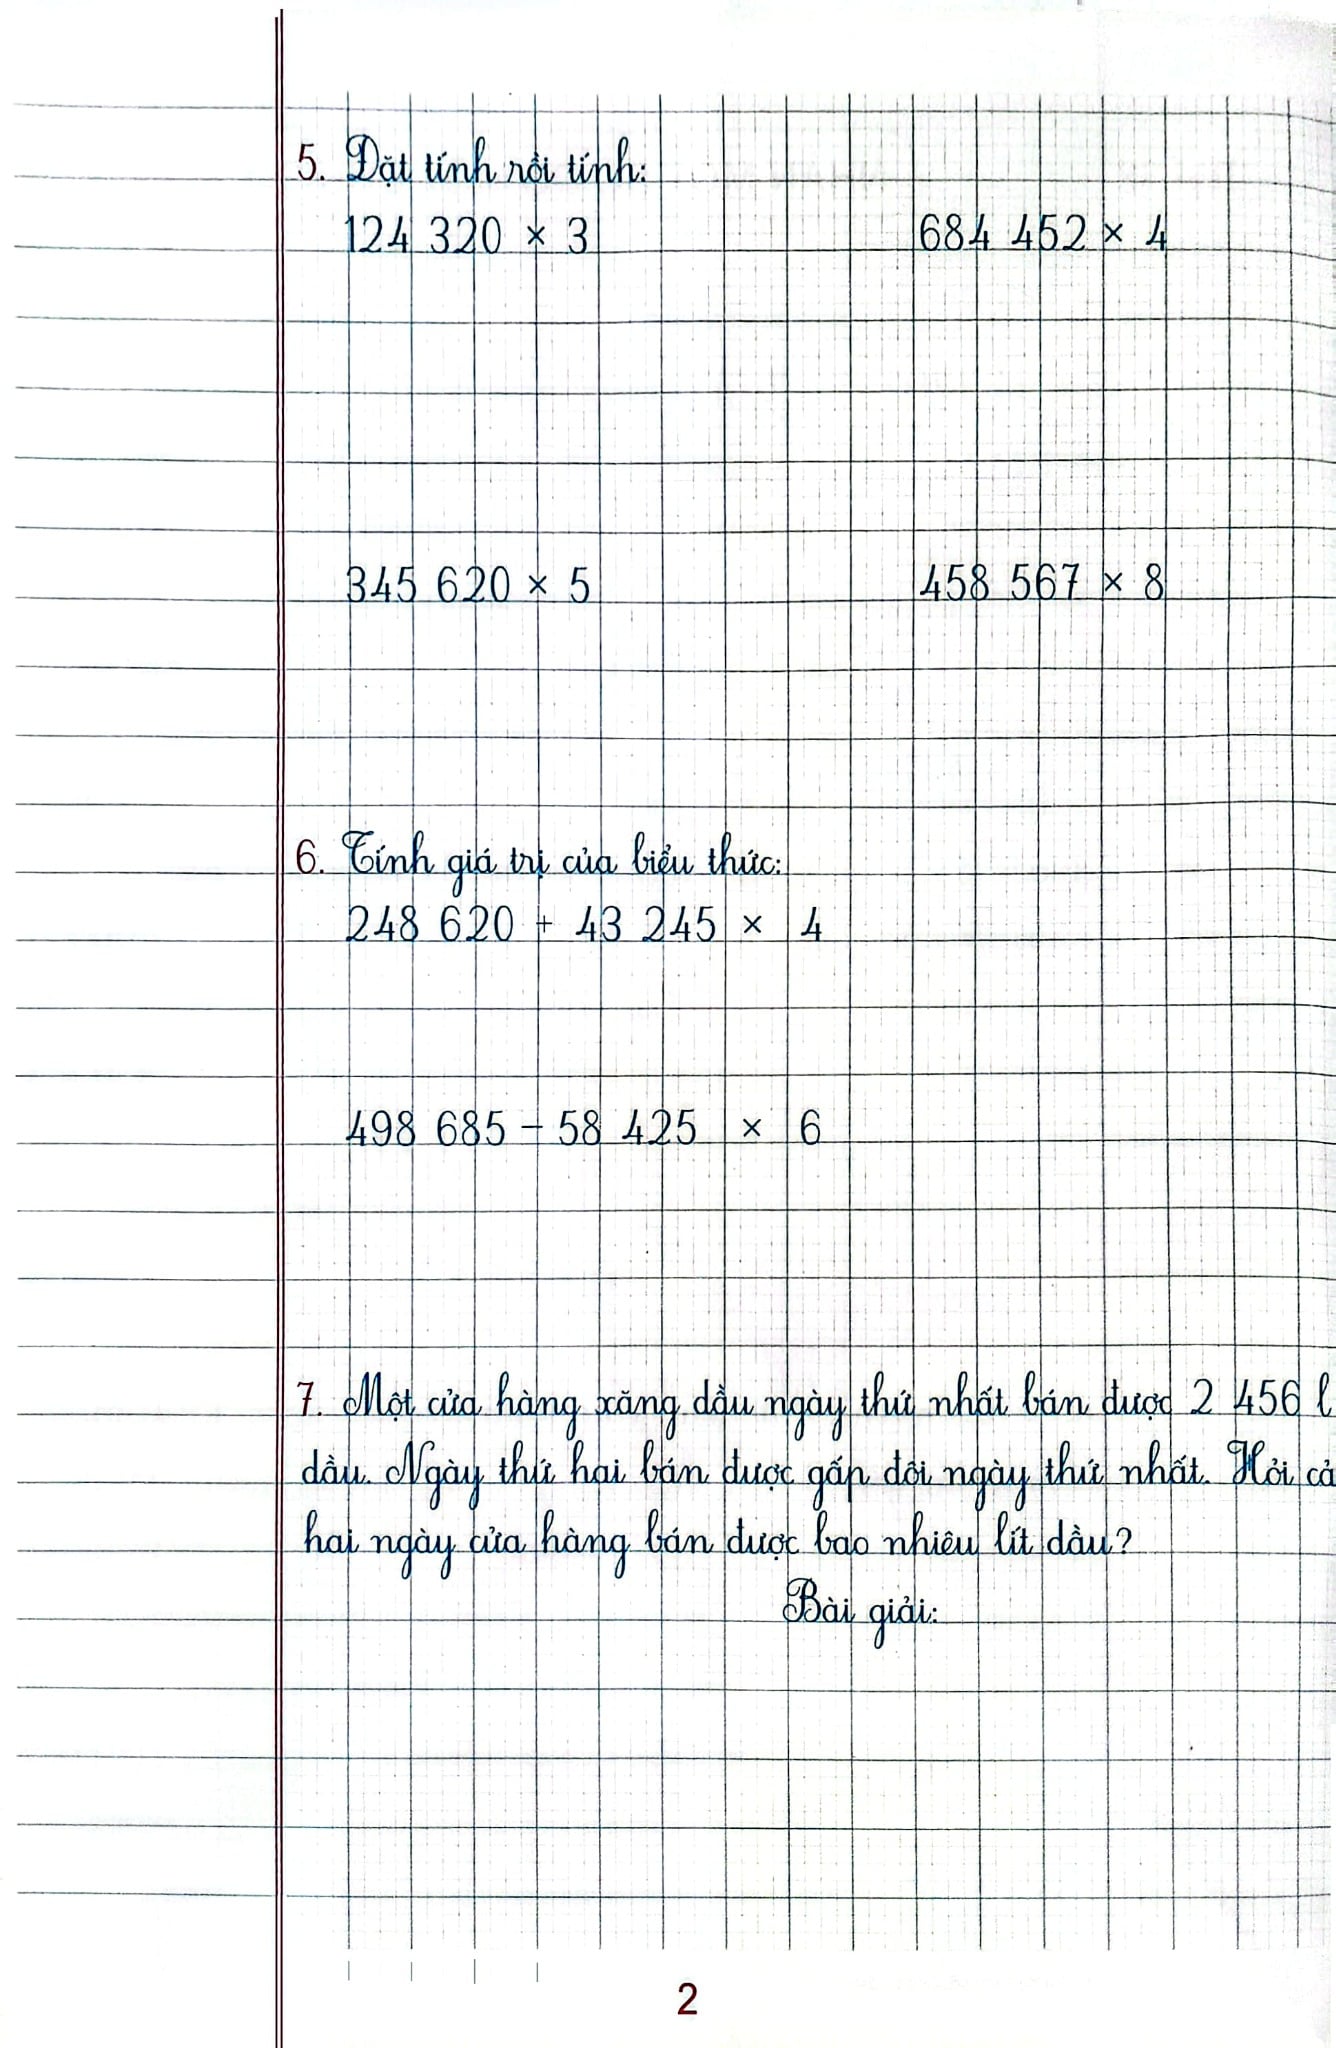 5. Đặt tính rồi tính:
124 320 × 3 684 452 × 4
345 620 × 5 458 567 × 8
6. Tính giá trị của biểu thức:
248 620 + 43 245 × 4
498 685 - 58 425 × 6
7. Một cửa hàng xăng dầu ngày thứ nhất bán được 2 456 l
dầu. Ngày thứ hai bán được gấp đôi ngày thứ nhất. Hỏi cả
hai ngày cửa hàng bán được bao nhiêu lít dầu?
Bài giải:
2